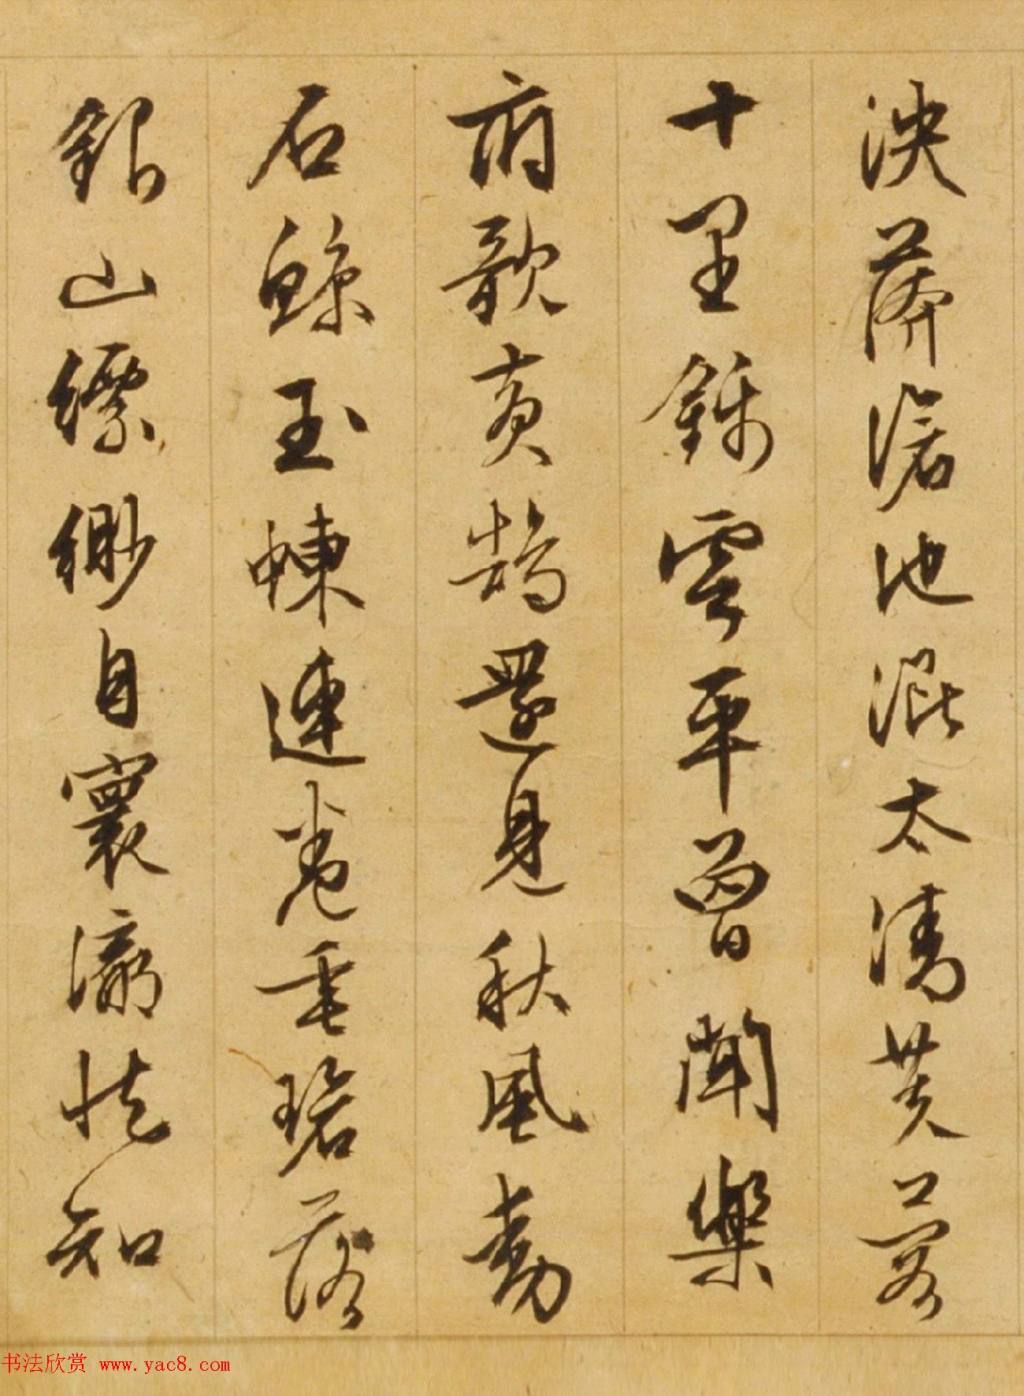 泱莽滄池混太清芙蓉
十里錦雲平曾聞樂
府歌黃鵠還見秋風動
石鯨玉蝀連卷垂碧落
銀山縹緲自寰瀛從知
书法欣赏 www.yac8.com